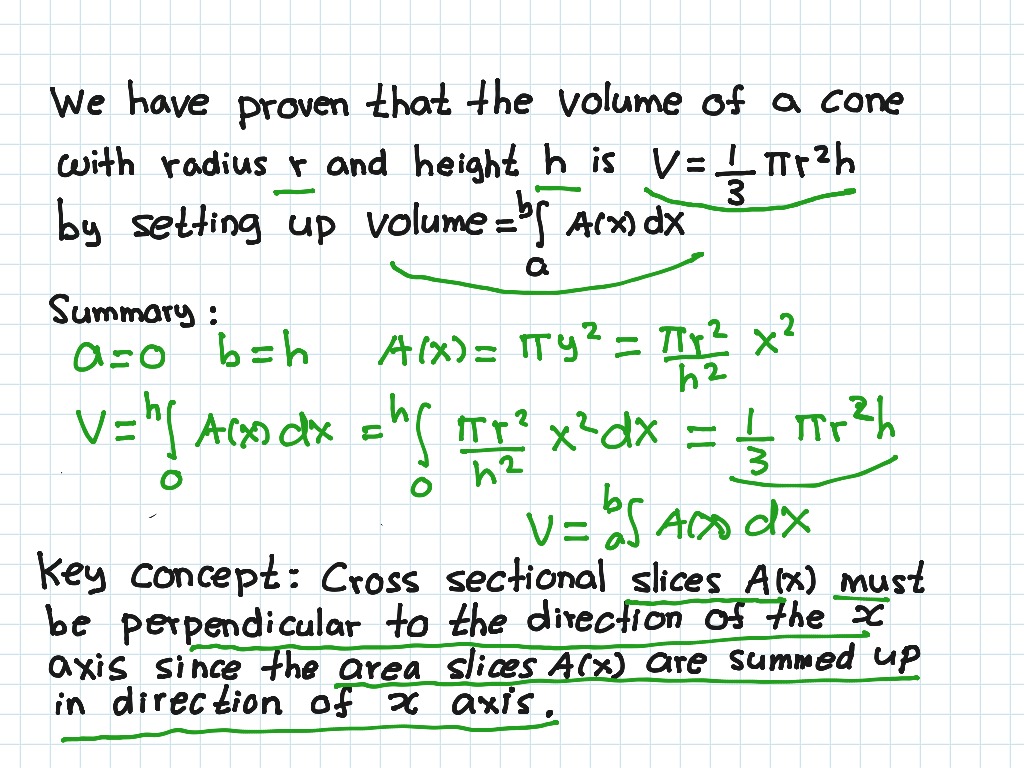 We have proven that the volume of a cone
with radius r and height h is V = 1/3 πr²h
by setting up volume = ᵇ∫ₐ A(x) dx
Summary:
a=0 b=h A(x) = πy² = πr²/h² x²
V = ʰ∫₀ A(x) dx = ʰ∫₀ πr²/h² x² dx = 1/3 πr²h
V = ᵇₐ∫ A(x) dx
Key concept: Cross sectional slices A(x) must
be perpendicular to the direction of the x
axis since the area slices A(x) are summed up
in direction of x axis.